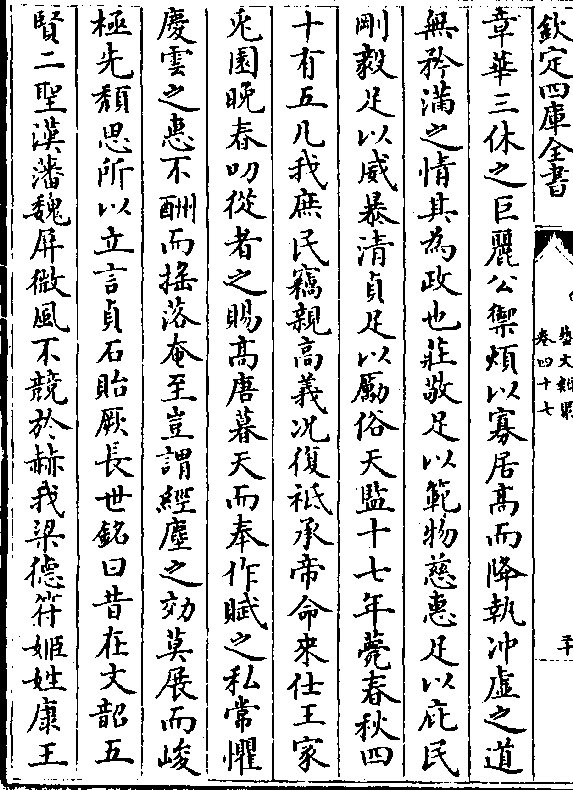 欽定四庫全書
卷四十七
章華三休之巨麗公禦煩以寡居高而降執冲虛之道
無矜滿之情其為政也莊敬足以範物慈惠足以庇民
剛毅足以威暴清貞足以勵俗天監十七年薨春秋四
十有五凡我庶民竊親高義况復祗承帝命來仕王家
兎園晚春叨從者之賜高唐暮天而奉作賦之私常懼
慶雲之惠不酬而揺落奄至豈謂經塵之効莫展而峻
極先頽思所以立言貞石貽厥長世銘曰昔在文韶五
賢二聖漢藩魏屏微風不競於赫我梁德符姬姓康王